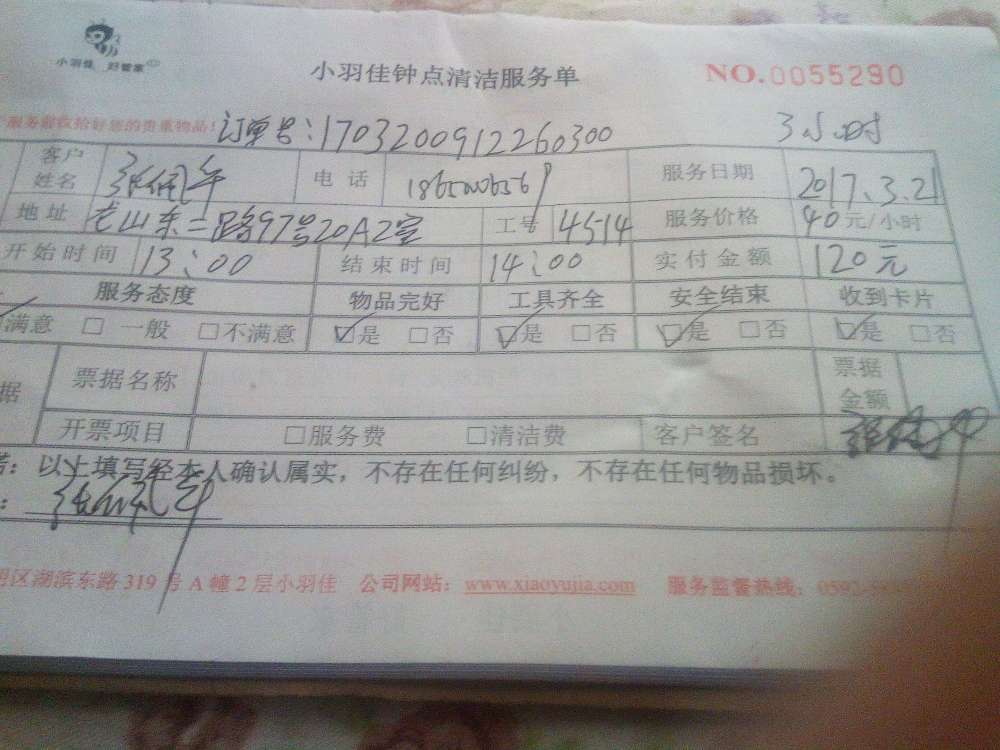 小羽佳 好管家
小羽佳钟点清洁服务单 NO.0055290
服务前收拾好您的贵重物品! 订单号:1703200912260300 3小时
客户姓名 电话 服务日期 2017.3.21
地址 东二路97号20A2室 工号 4514 服务价格 40元/小时
开始时间 13:00 结束时间 14:00 实付金额 120元
服务态度 物品完好 工具齐全 安全结束 收到卡片
满意 □ 一般 □不满意 ☑是 □否 ☑是 □否 ☑是 □否 ☑是 □否
据 票据名称 票据金额
开票项目 □服务费 □清洁费 客户签名
以上填写经本人确认属实,不存在任何纠纷,不存在任何物品损坏。
区湖滨东路319号A幢2层小羽佳 公司网站:www.xiaoyujia.com 服务监督热线:0592-